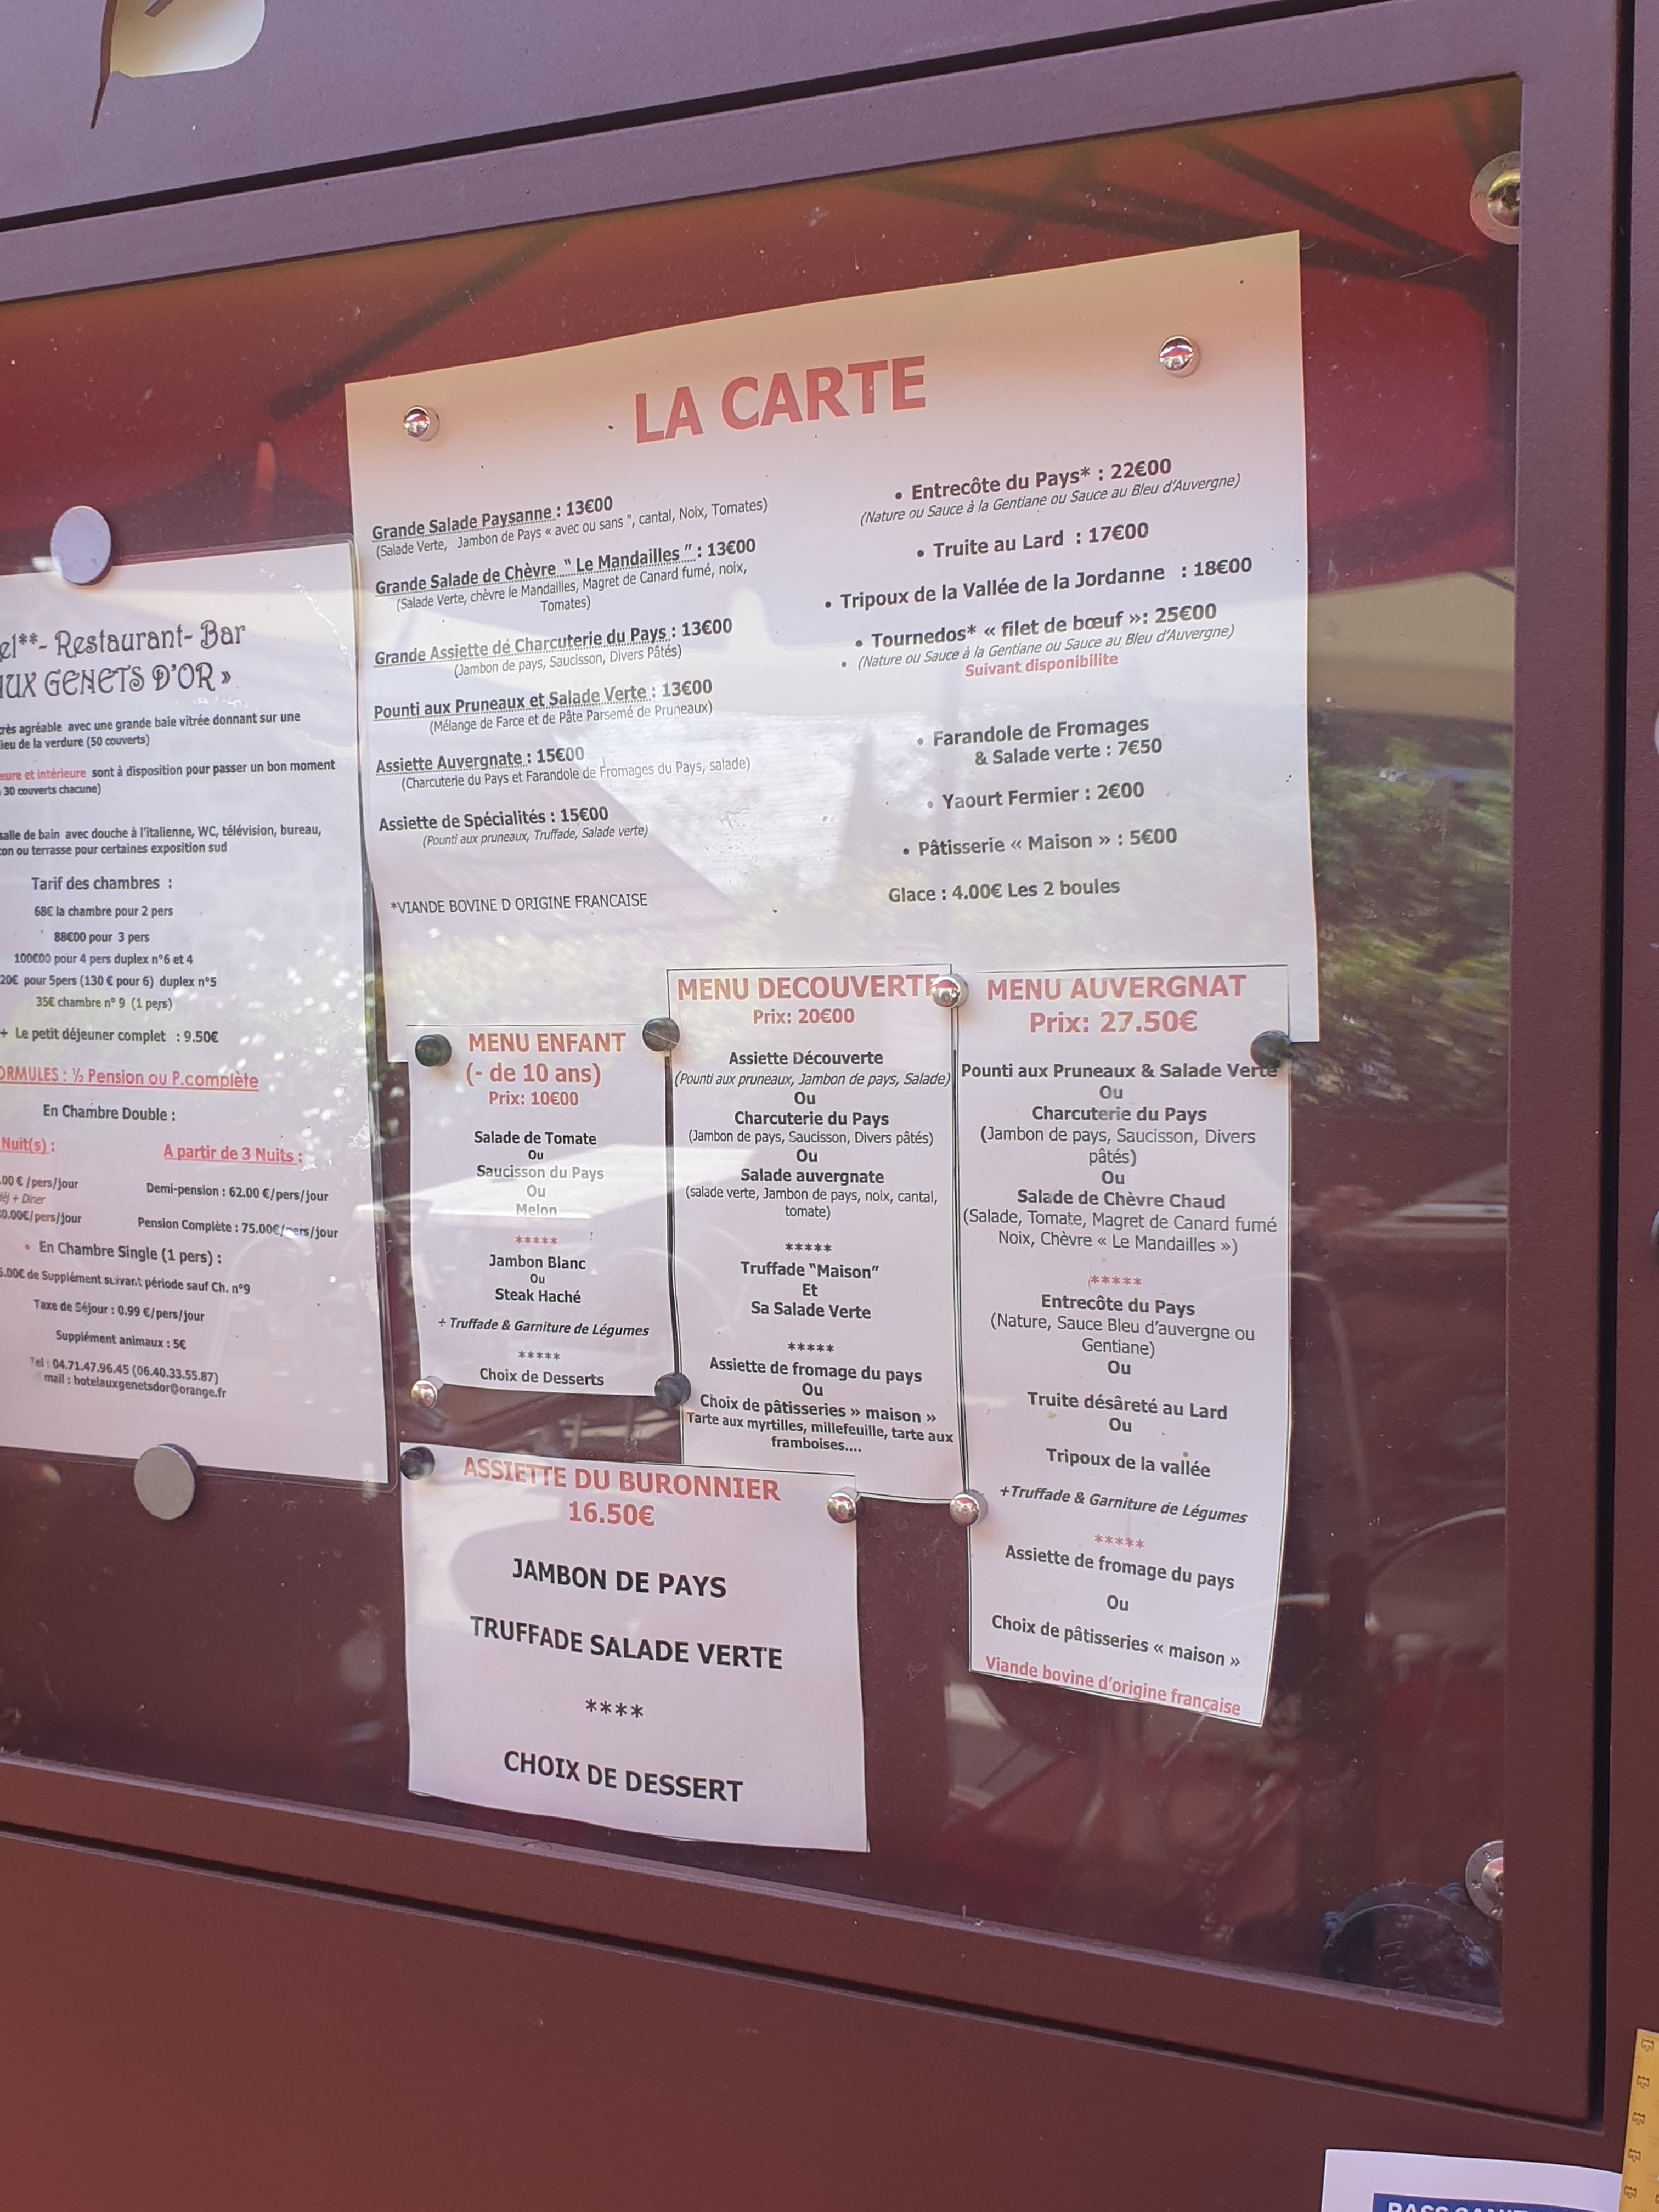 Restaurant- Bar
GENETS D'OR »
très agréable avec une grande baie vitrée donnant sur une
de la verdure (50 couverts)
et intérieure sont à disposition pour passer un bon moment
30 couverts chacune)
salle de bain avec douche à l'italienne, WC, télévision, bureau,
ou terrasse pour certaines exposition sud
Tarif des chambres :
68€ la chambre pour 2 pers
88€00 pour 3 pers
100€00 pour 4 pers duplex n°6 et 4
20€ pour 5pers (130 € pour 6) duplex n°5
35€ chambre n° 9 (1 pers)
+ Le petit déjeuner complet : 9.50€
½ Pension ou P.complète
En Chambre Double :
Nuit(s) :
.00 € /pers/jour
+ Diner
0.00€/pers/jour
A partir de 3 Nuits :
Demi-pension : 62.00 €/pers/jour
Pension Complète : 75.00€/pers/jour
• En Chambre Single (1 pers) :
5.00€ de Supplément suivant période sauf Ch. n°9
Taxe de Séjour : 0.99 €/pers/jour
Supplément animaux : 5€
Tel : 04.71.47.96.45 (06.40.33.55.87)
mail : hotelauxgenetsdor@orange.fr
LA CARTE
Grande Salade Paysanne : 13€00
(Salade Verte, Jambon de Pays « avec ou sans ", cantal, Noix, Tomates)
Grande Salade de Chèvre " Le Mandailles " : 13€00
(Salade Verte, chèvre le Mandailles, Magret de Canard fumé, noix,
Tomates)
Grande Assiette de Charcuterie du Pays : 13€00
(Jambon de pays, Saucisson, Divers Pâtés)
Pounti aux Pruneaux et Salade Verte : 13€00
(Mélange de Farce et de Pâte Parsemé de Pruneaux)
Assiette Auvergnate : 15€00
(Charcuterie du Pays et Farandole de Fromages du Pays, salade)
Assiette de Spécialités : 15€00
(Pounti aux pruneaux, Truffade, Salade verte)
*VIANDE BOVINE D ORIGINE FRANCAISE
• Entrecôte du Pays* : 22€00
(Nature ou Sauce à la Gentiane ou Sauce au Bleu d'Auvergne)
• Truite au Lard : 17€00
• Tripoux de la Vallée de la Jordanne : 18€00
• Tournedos* « filet de bœuf »: 25€00
• (Nature ou Sauce à la Gentiane ou Sauce au Bleu d'Auvergne)
Suivant disponibilite
• Farandole de Fromages
& Salade verte : 7€50
• Yaourt Fermier : 2€00
• Pâtisserie « Maison » : 5€00
Glace : 4.00€ Les 2 boules
MENU ENFANT
(- de 10 ans)
Prix: 10€00
Salade de Tomate
Ou
Saucisson du Pays
Ou
Melon
*****
Jambon Blanc
Ou
Steak Haché
+ Truffade & Garniture de Légumes
*****
Choix de Desserts
MENU DECOUVERTE
Prix: 20€00
Assiette Découverte
(Pounti aux pruneaux, Jambon de pays, Salade)
Ou
Charcuterie du Pays
(Jambon de pays, Saucisson, Divers pâtés)
Ou
Salade auvergnate
(salade verte, Jambon de pays, noix, cantal,
tomate)
*****
Truffade "Maison"
Et
Sa Salade Verte
*****
Assiette de fromage du pays
Ou
Choix de pâtisseries » maison »
Tarte aux myrtilles, millefeuille, tarte aux
framboises....
MENU AUVERGNAT
Prix: 27.50€
Pounti aux Pruneaux & Salade Verte
Ou
Charcuterie du Pays
(Jambon de pays, Saucisson, Divers
pâtés)
Ou
Salade de Chèvre Chaud
(Salade, Tomate, Magret de Canard fumé
Noix, Chèvre « Le Mandailles »)
*****
Entrecôte du Pays
(Nature, Sauce Bleu d'auvergne ou
Gentiane)
Ou
Truite désâreté au Lard
Ou
Tripoux de la vallée
+Truffade & Garniture de Légumes
*****
Assiette de fromage du pays
Ou
Choix de pâtisseries « maison »
Viande bovine d'origine française
ASSIETTE DU BURONNIER
16.50€
JAMBON DE PAYS
TRUFFADE SALADE VERTE
****
CHOIX DE DESSERT